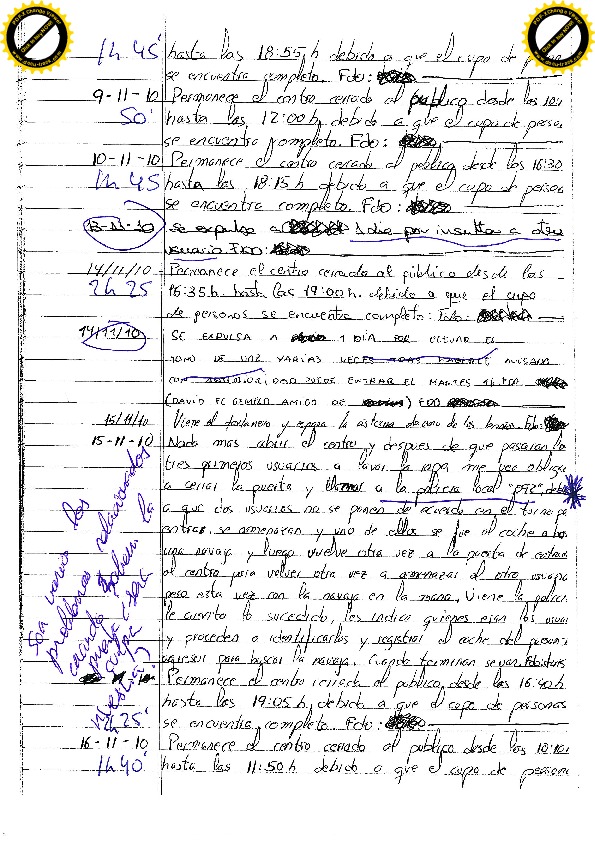 1h 45' hasta las 18:55 h debido a que el cupo de
se encuentra completo. Fdo:
9-11-10 Permanece el centro cerrado al público desde las
50' hasta las 12:00 h, debido a que el cupo de person
se encuentra completo. Fdo:
10-11-10 Permanece el centro cerrado al público desde las 16:30
1h 45' hasta las 18:15 h debido a que el cupo de person
se encuentra completo. Fdo:
se expulsa a 1 dia por insultos a otro
usuario. FDO:
14/11/10 Permanece el centro cerrado al público desde las
2h 25' 16:35 h hasta las 19:00 h. debido a que el cupo
de personas se encuentra completo: Fdo:
14/11/10 SE EXPULSA A 1 DIA POR ELEVAR EL
TONO DE VOZ VARIAS VECES
ENTRAR EL MARTES 16
(DAVID EL GEMELO AMIGO DE ) FDO
15/11/10 Viene el fontanero y repara la cisterna de uno de los baños. Fdo:
15-11-10 Nada mas abrir el centro y despues de que pasaran los
tres primeros usuarios a lavar la ropa me veo obliga
a cerrar la puerta y llamar a la policia local "092", debi
a que dos usuarios no se ponen de acuerdo en el turno pa
entrar, se amenazan y uno de ellos se fue al coche a por
una navaja y luego vuelve otra vez a la puerta de entrada
al centro para volver otra vez a amenazar al otro usuario
pero esta vez con la navaja en la mano. Viene la polici
le cuento lo sucedido, les indico quienes eran los usuar
y proceden a identificarlos y registrar el coche del presunt
agresor para buscar la navaja. Cuando terminan se van.
Son varios los
problemas relacionados
cuando
Permanece el centro cerrado al público, desde las 16:40 h
2h 25' hasta las 19:05 h, debido a que el cupo de personas
se encuentra completo. Fdo:
16-11-10 Permanece el centro cerrado al público desde las 10:10
1h 40' hasta las 11:50 h debido a que el cupo de persona